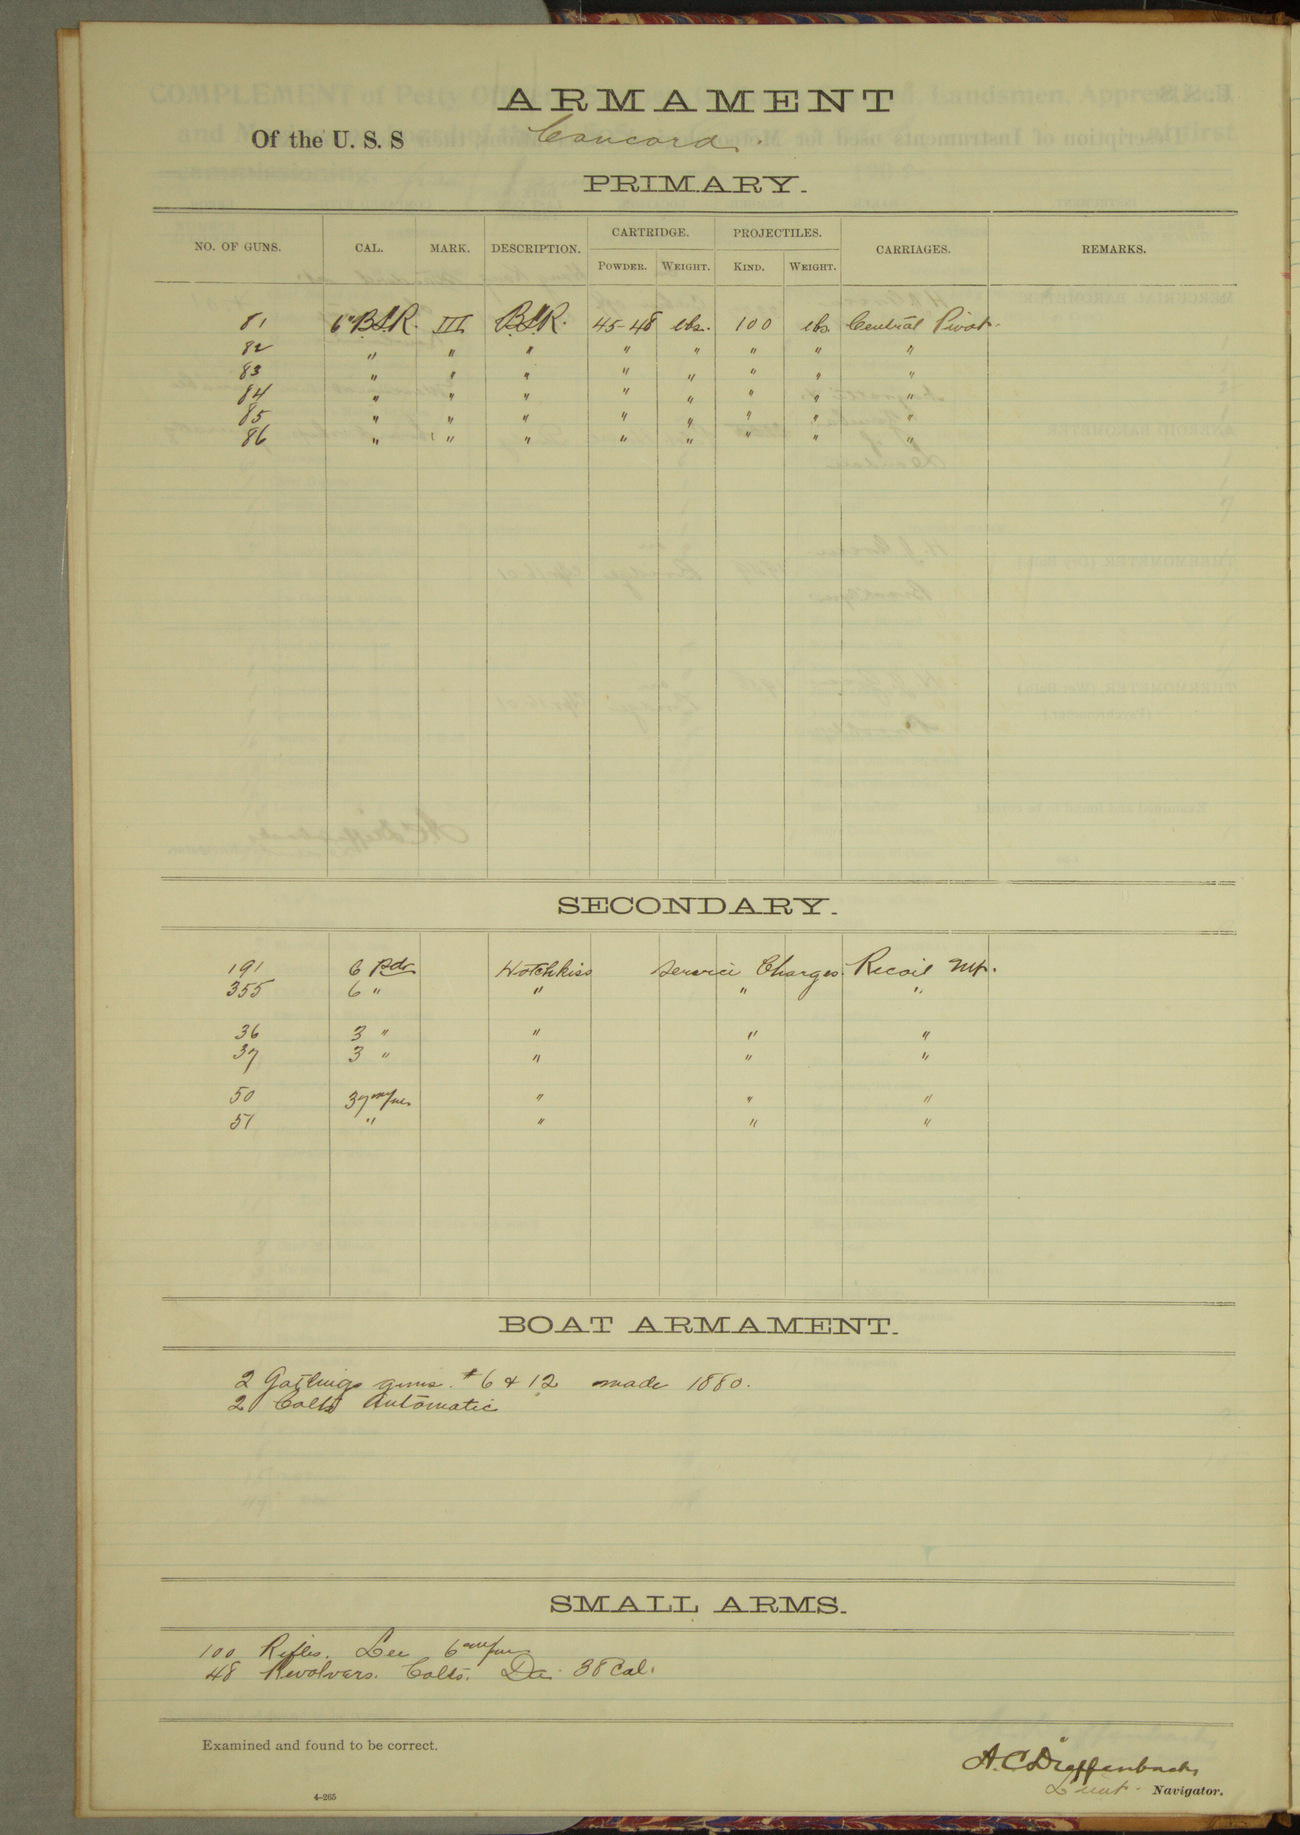 ARMAMENT
Of the U. S. S Concord.
PRIMARY.
NO. OF GUNS. CAL. MARK. DESCRIPTION. CARTRIDGE. PROJECTILES. CARRIAGES. REMARKS.
POWDER. WEIGHT. KIND. WEIGHT.
81 6" B.L.R. III B.L.R. 45-48 lbs. 100 lbs. Central Pivot.
82 " " " " " " " "
83 " " " " " " " "
84 " " " " " " " "
85 " " " " " " " "
86 " " " " " " " "
SECONDARY.
191 6 Pdr Hotchkiss Service Charges. Recoil Mt.
355 6 " " " "
36 3 " " " "
37 3 " " " "
50 37 m/m " " "
51 " " " "
BOAT ARMAMENT.
2 Gatlings guns. #6 & 12 made 1880.
2 Colts Automatic
SMALL ARMS.
100 Rifles. Lee 6 m/m
48 Revolvers. Colts. Da. 38 Cal.
Examined and found to be correct.
A. C. Dieffenbach
Lieut. Navigator.
4-265